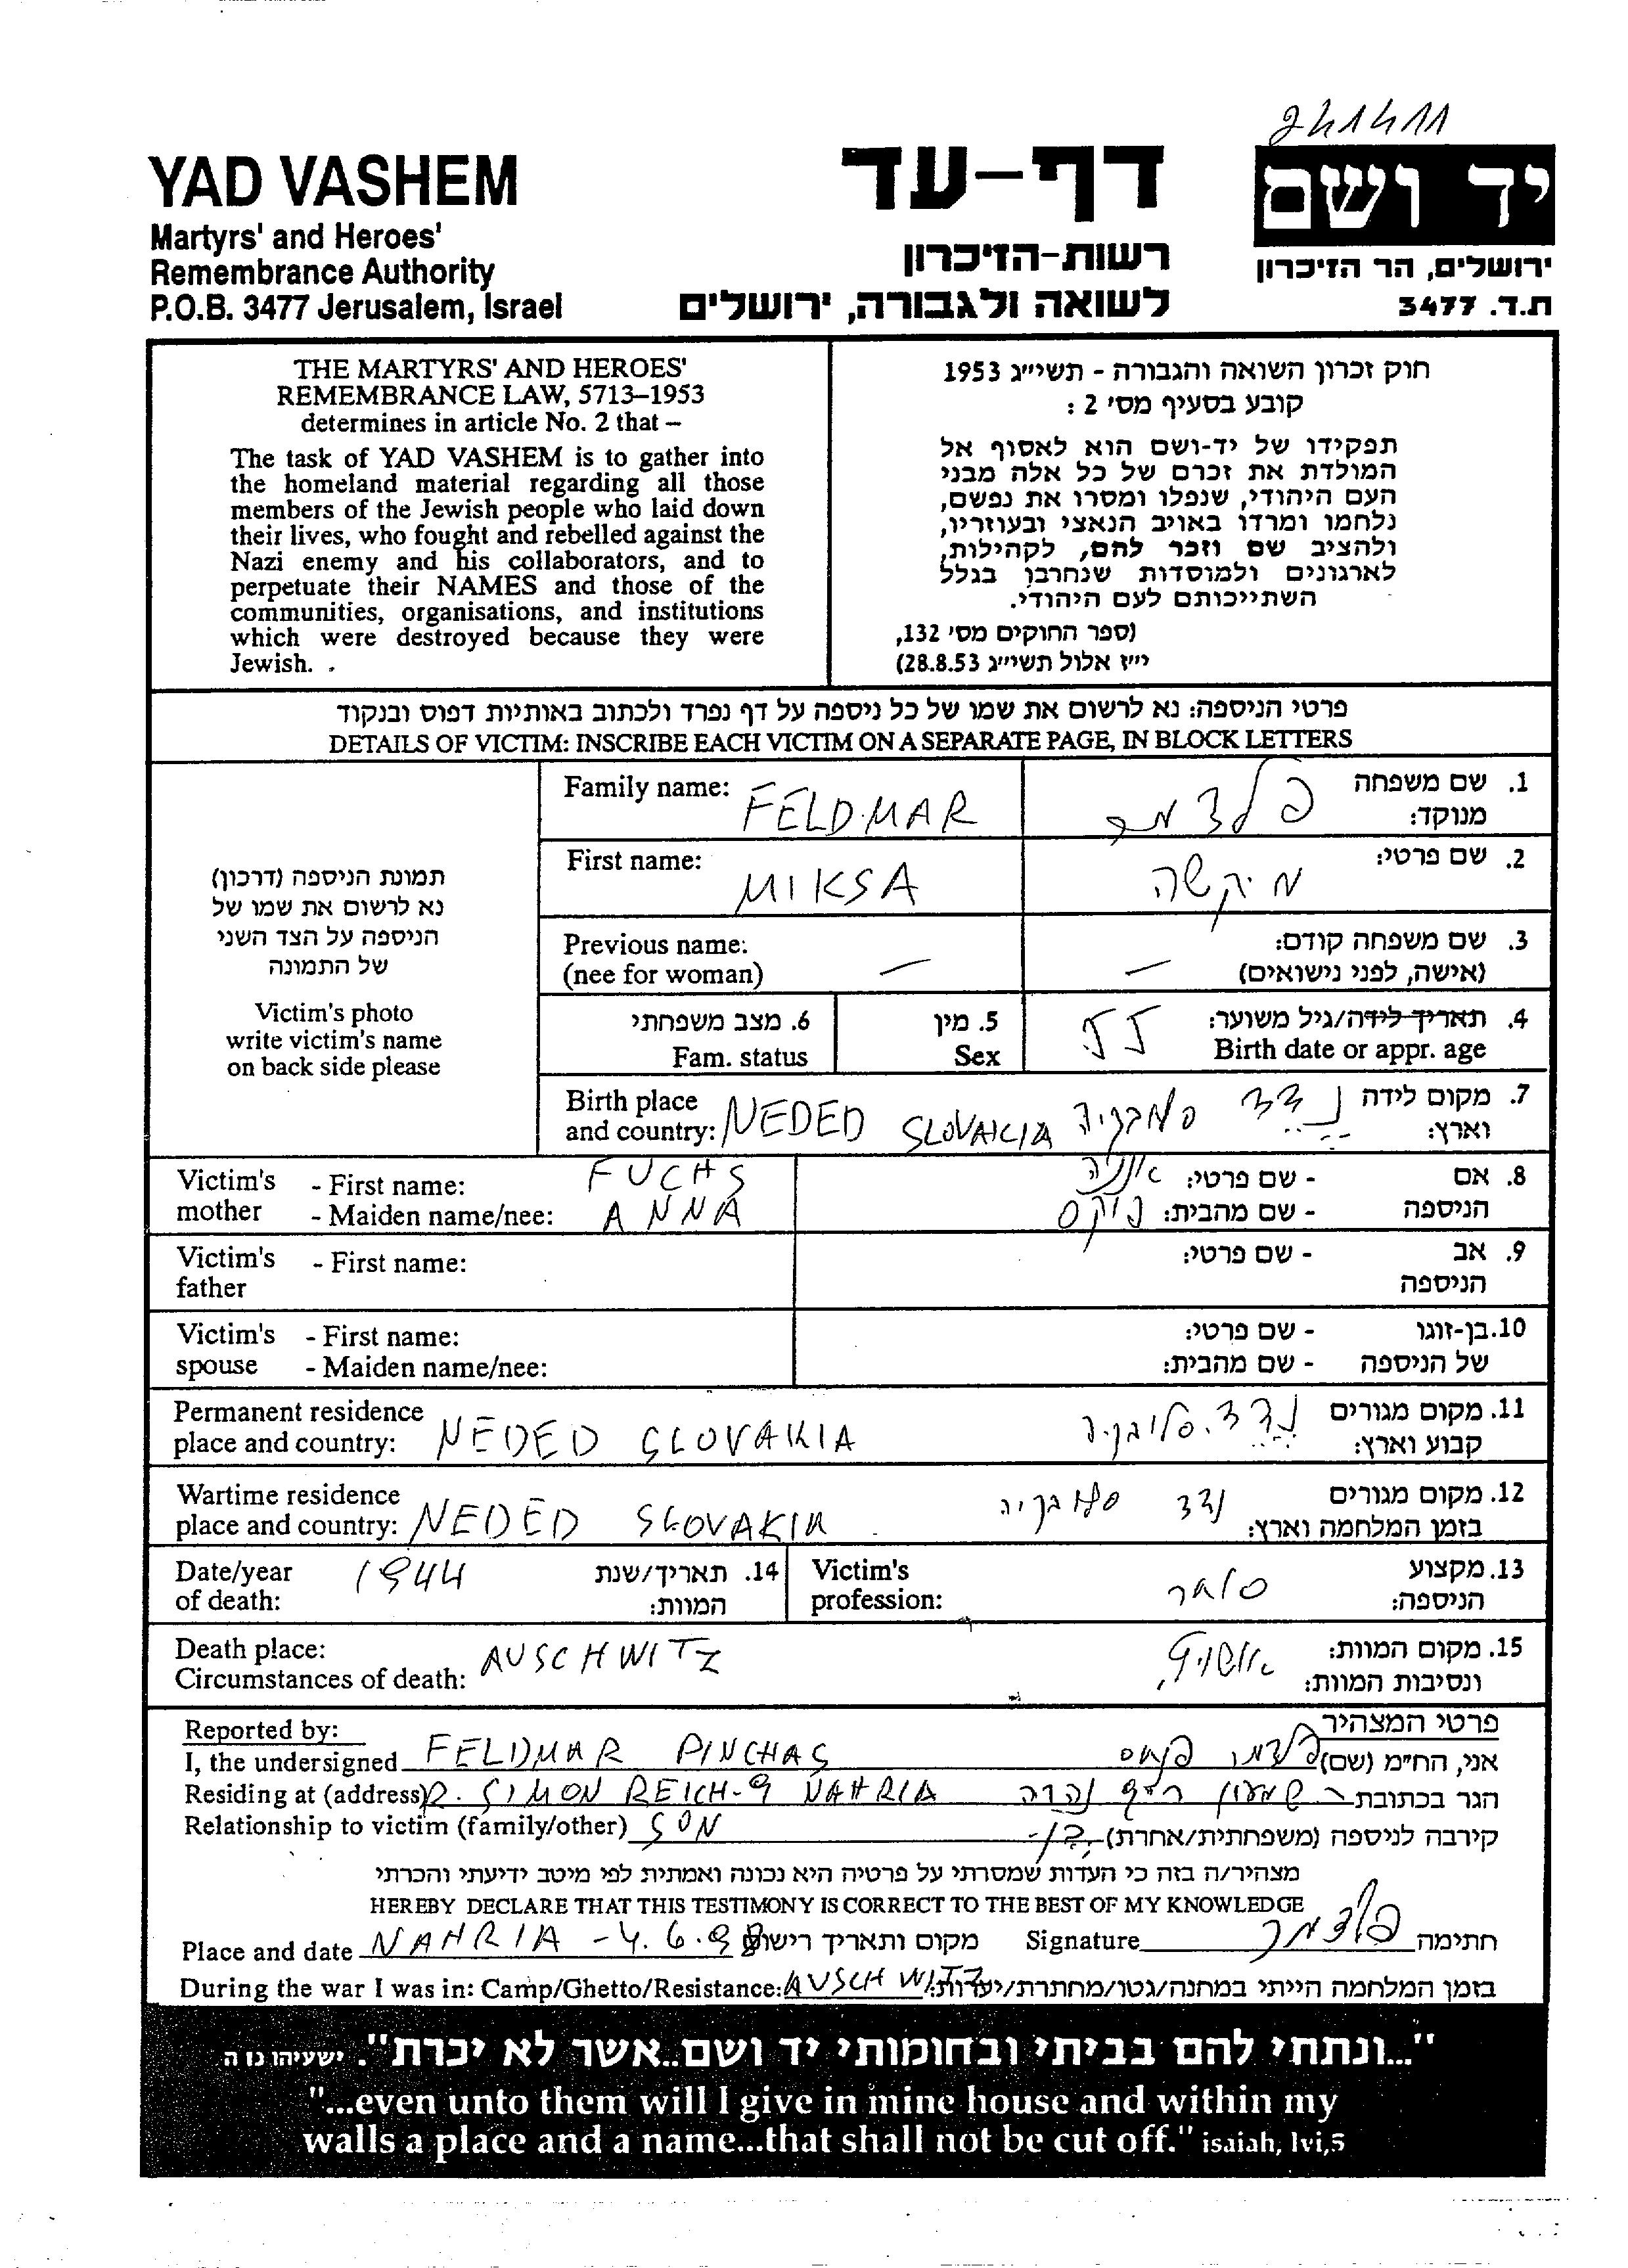 YAD VASHEM
Martyrs' and Heroes'
Remembrance Authority
P.O.B. 3477 Jerusalem, Israel
דף-עד
רשות-הזיכרון
לשואה ולגבורה, ירושלים
יד ושם
ירושלים, הר הזיכרון
ת.ד. 3477
THE MARTYRS' AND HEROES'
REMEMBRANCE LAW, 5713–1953
determines in article No. 2 that –
The task of YAD VASHEM is to gather into
the homeland material regarding all those
members of the Jewish people who laid down
their lives, who fought and rebelled against the
Nazi enemy and his collaborators, and to
perpetuate their NAMES and those of the
communities, organisations, and institutions
which were destroyed because they were
Jewish.
חוק זכרון השואה והגבורה - תשי״ג 1953
קובע בסעיף מס׳ 2 :
תפקידו של יד-ושם הוא לאסוף אל
המולדת את זכרם של כל אלה מבני
העם היהודי, שנפלו ומסרו את נפשם,
נלחמו ומרדו באויב הנאצי ובעוזריו,
ולהציב שם וזכר להם, לקהילות,
לארגונים ולמוסדות שנחרבו בגלל
השתייכותם לעם היהודי.
(ספר החוקים מס׳ 132,
י״ז אלול תשי״ג 28.8.53)
פרטי הניספה: נא לרשום את שמו של כל ניספה על דף נפרד ולכתוב באותיות דפוס ובנקוד
DETAILS OF VICTIM: INSCRIBE EACH VICTIM ON A SEPARATE PAGE, IN BLOCK LETTERS
תמונת הניספה (דרכון)
נא לרשום את שמו של
הניספה על הצד השני
של התמונה
Victim's photo
write victim's name
on back side please
Family name: FELDMAR פלדמר 1. שם משפחה
מנוקד:
First name: MIKSA מיקשה 2. שם פרטי:
Previous name: 3. שם משפחה קודם:
(nee for woman) – – (אישה, לפני נישואים)
6. מצב משפחתי 5. מין 4. תאריך לידה/גיל משוער:
Fam. status Sex 55 Birth date or appr. age
Birth place NEDED SLOVAKIA סלובקיה נדד 7. מקום לידה
and country: וארץ:
Victim's - First name: FUCHS אנה - שם פרטי: 8. אם
mother - Maiden name/nee: ANNA פוקס - שם מהבית: הניספה
Victim's - First name: - שם פרטי: 9. אב
father הניספה
Victim's - First name: - שם פרטי: 10. בן-זוגו
spouse - Maiden name/nee: - שם מהבית: של הניספה
Permanent residence 11. מקום מגורים
place and country: NEDED SLOVAKIA נדד. סלובקיה קבוע וארץ:
Wartime residence 12. מקום מגורים
place and country: NEDED SLOVAKIA נדד סלובקיה בזמן המלחמה וארץ:
Date/year 1944 14. תאריך/שנת Victim's 13. מקצוע
of death: המוות: profession: סוחר הניספה:
Death place: AUSCHWITZ 15. מקום המוות:
Circumstances of death: ונסיבות המוות:
Reported by: פרטי המצהיר
I, the undersigned FELDMAR PINCHAS פלדמר פנחס אני, הח״מ (שם)
Residing at (address) R. SIMON REICH-9 NAHRIA הגר בכתובת
Relationship to victim (family/other) SON בן קירבה לניספה (משפחתית/אחרת)
מצהיר/ה בזה כי העדות שמסרתי על פרטיה היא נכונה ואמתית לפי מיטב ידיעתי והכרתי
HEREBY DECLARE THAT THIS TESTIMONY IS CORRECT TO THE BEST OF MY KNOWLEDGE
Place and date NAHRIA - 4.6.98 מקום ותאריך רישום Signature פלדמר חתימה
During the war I was in: Camp/Ghetto/Resistance: AUSCHWITZ בזמן המלחמה הייתי במחנה/גטו/מחתרת/יערות:
"...ונתתי להם בביתי ובחומותי יד ושם..אשר לא יכרת". ישעיהו נו ה
"...even unto them will I give in mine house and within my
walls a place and a name...that shall not be cut off." isaiah, lvi,5